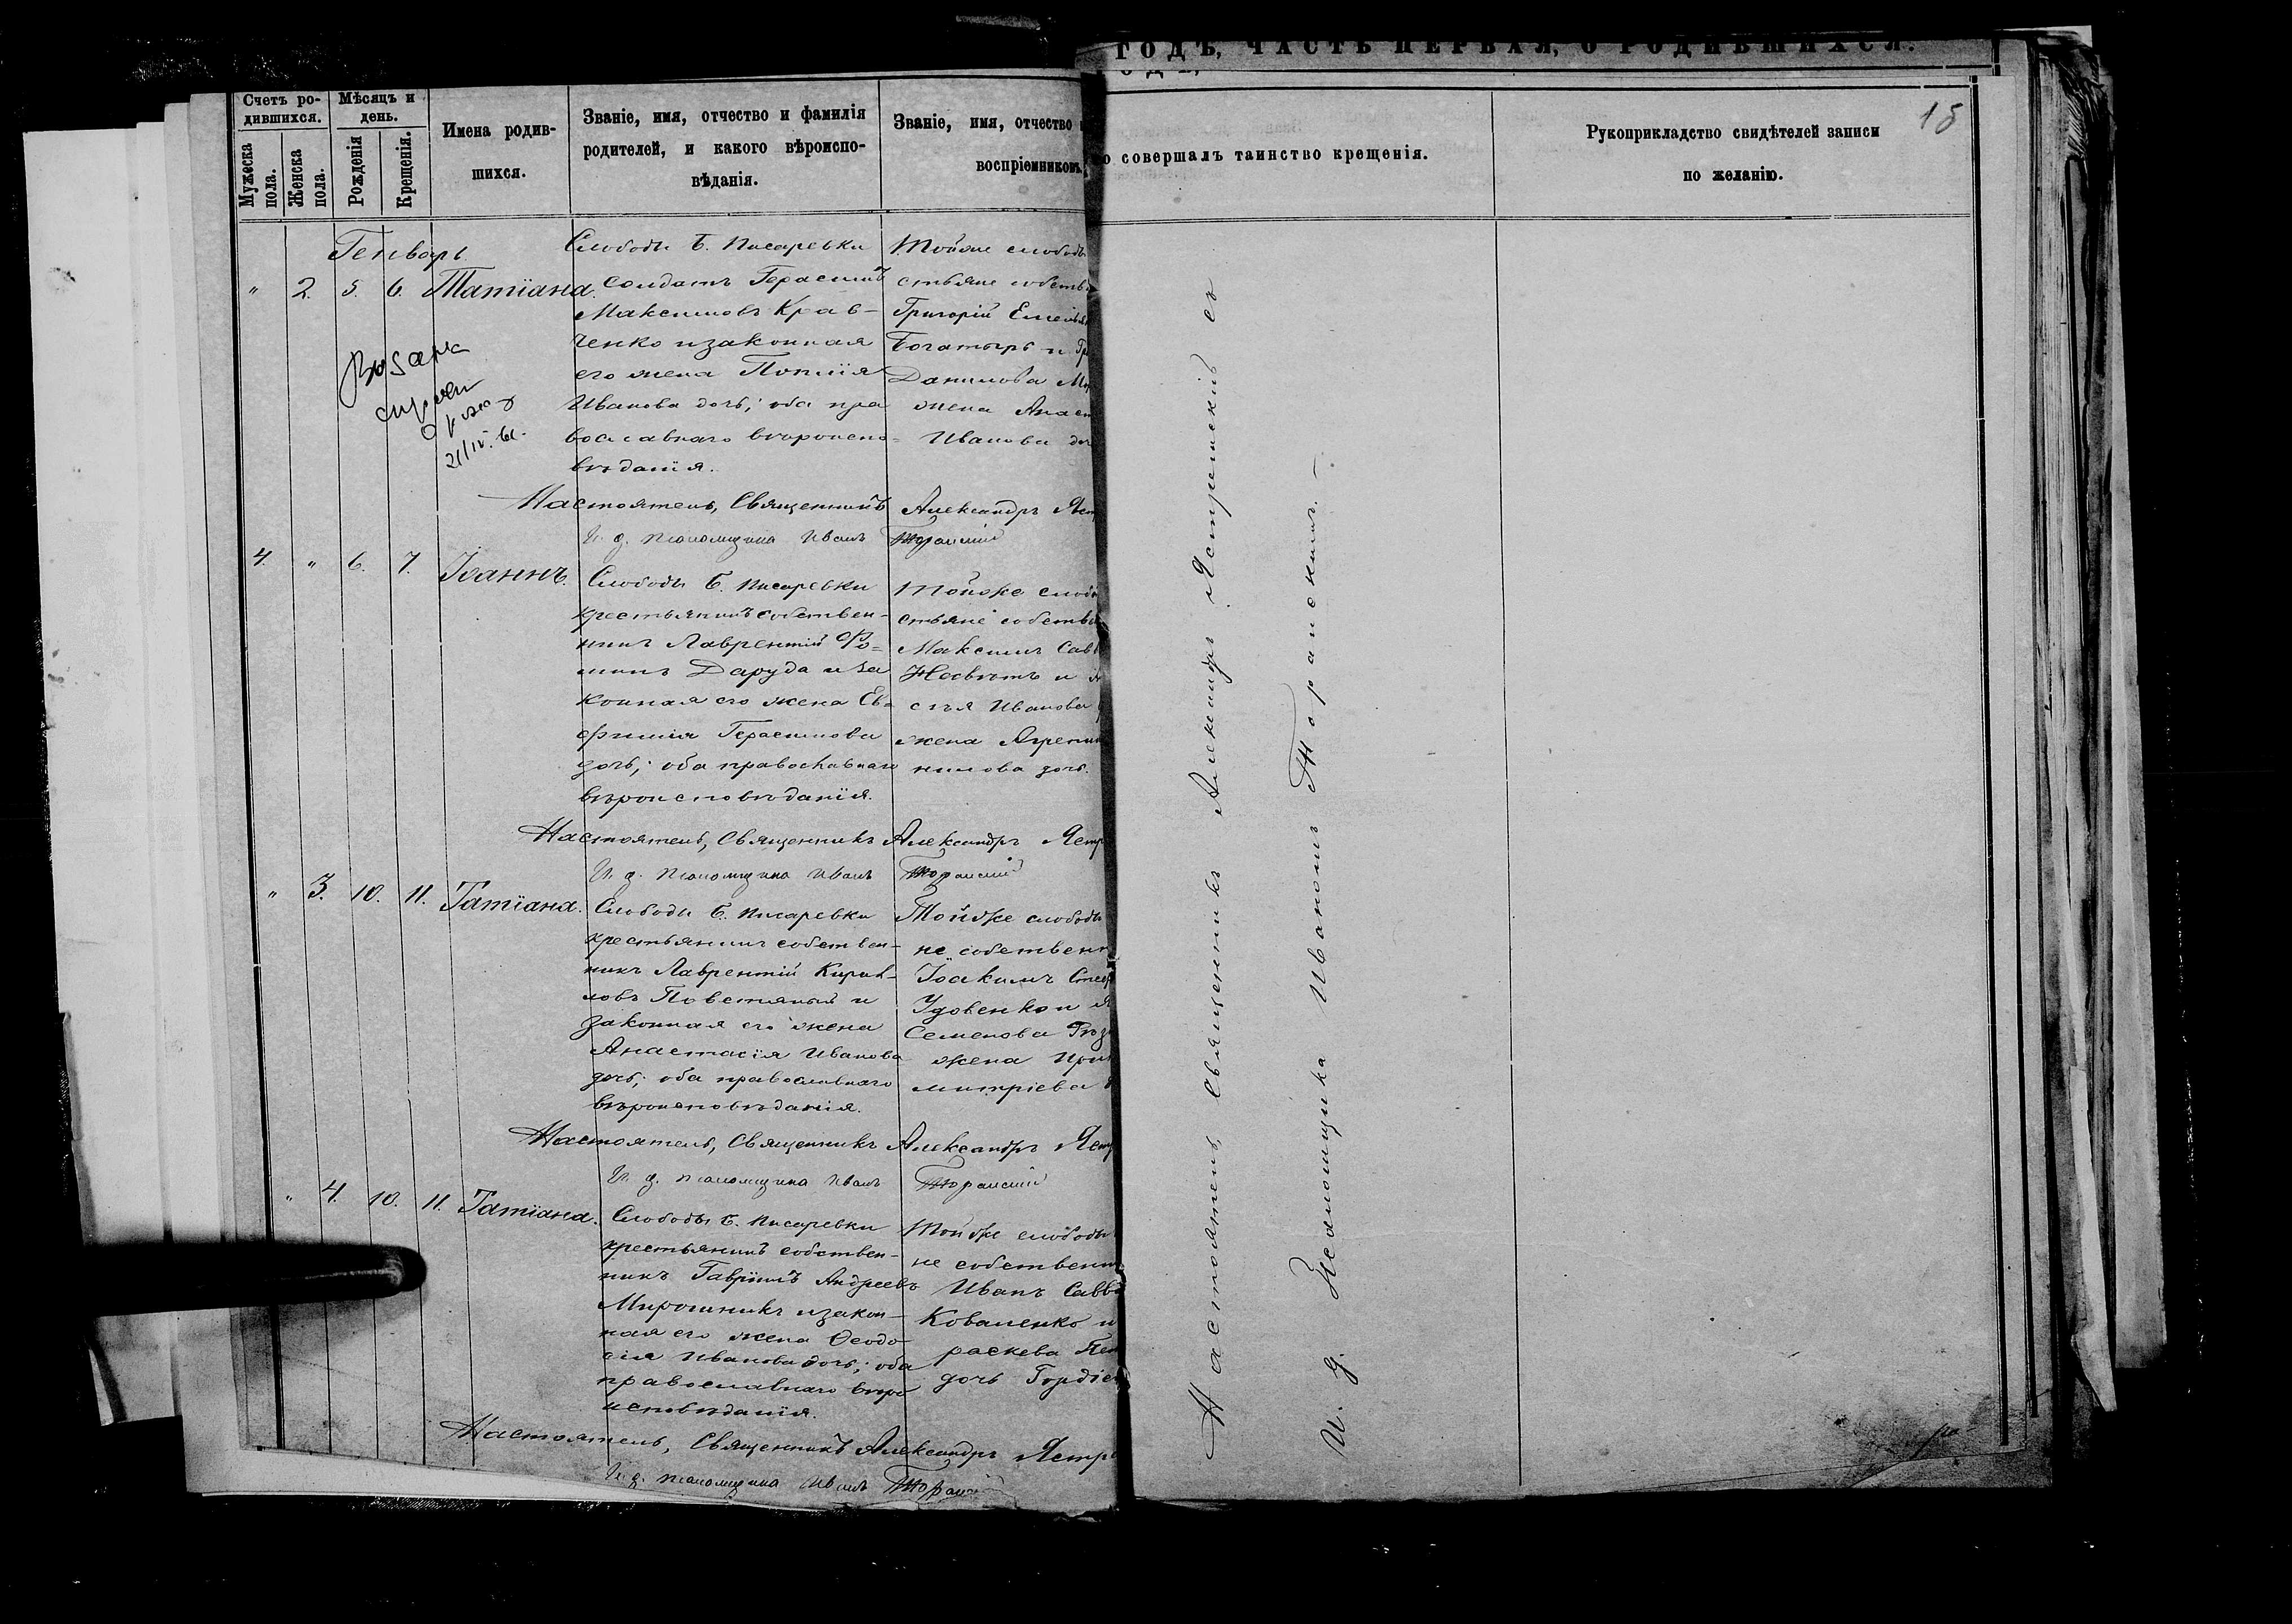 ГОДЪ, ЧАСТЬ ПЕРВАЯ, О РОДИВШИХСЯ.
Счетъ ро-
дившихся.
Мужеска
пола.
Женска
пола.
Мѣсяцъ и
день.
Рожденія
Крещенія.
Имена родив-
шихся.
Званіе, имя, отчество и фамилія
родителей, и какого вѣроиспо-
вѣданія.
Званіе, имя, отчество
воспріемниковъ.
совершалъ таинство крещенія.
Рукоприкладство свидѣтелей записи
по желанію.
15
Генварь
" 2. 5. 6. Татіана.
Слободы Б. Писаревки
солдатъ Герасимъ
Максимовъ Крав-
ченко и законная
его жена
Иванова дочь; оба пра
вославнаго вѣроиспо=
вѣданія.
Тойже слободы
стьяне собств
Григорій Емелья
Богатырь и Гр
Данилова
жена Анаст
Иванова доч
21/IV
Настоятель, Священникъ Александръ Ястр
И. д. псаломщика Иванъ Торанскій
4. " 6. 7. Іоаннъ.
Слободы Б. Писаревки
крестьянинъ собствен-
никъ Лаврентій Фо=
минъ Даруда и за
конная его жена Ев=
фимія Герасимова
дочь; оба православнаго
вѣроисповѣданія.
Тойже слобо
стьяне собстве
Максимъ Савв
и
Иванова
жена Агрепин
нилова дочь.
Настоятель, Священникъ Александръ Ястр
И. д. псаломщика Иванъ Торанскій
" 3. 10. 11. Татіана.
Слободы Б. Писаревки
крестьянинъ собствен-
никъ Лаврентій Кирил-
ловъ Повстяный и
законная его жена
Анастасія Иванова
дочь; оба православнаго
вѣроисповѣданія.
Тойже слободы
не собственн
Іоакимъ Стеф
Удовенко и
Семенова
жена Ири
митріева
Настоятель, Священникъ Александръ Ястр
И. д. псаломщика Иванъ Торанскій
" 4. 10. 11. Татіана.
Слободы Б. Писаревки
крестьянинъ собствен-
никъ Гавріилъ Андреевъ
Мирошникъ и закон-
ная его жена Ѳеодо-
сія Иванова дочь; оба
православнаго вѣро
исповѣданія.
Тойже слободы
не собственн
Иванъ Савв
Коваленко и
раскева Пет
дочь Гордіен
Настоятель, Священникъ Александръ Ястр
И. д. псаломщика Иванъ Торанскій
Настоятель, Священникъ Александръ Ястремскій съ
И. д. Псаломщика Иваномъ Торанскимъ. -